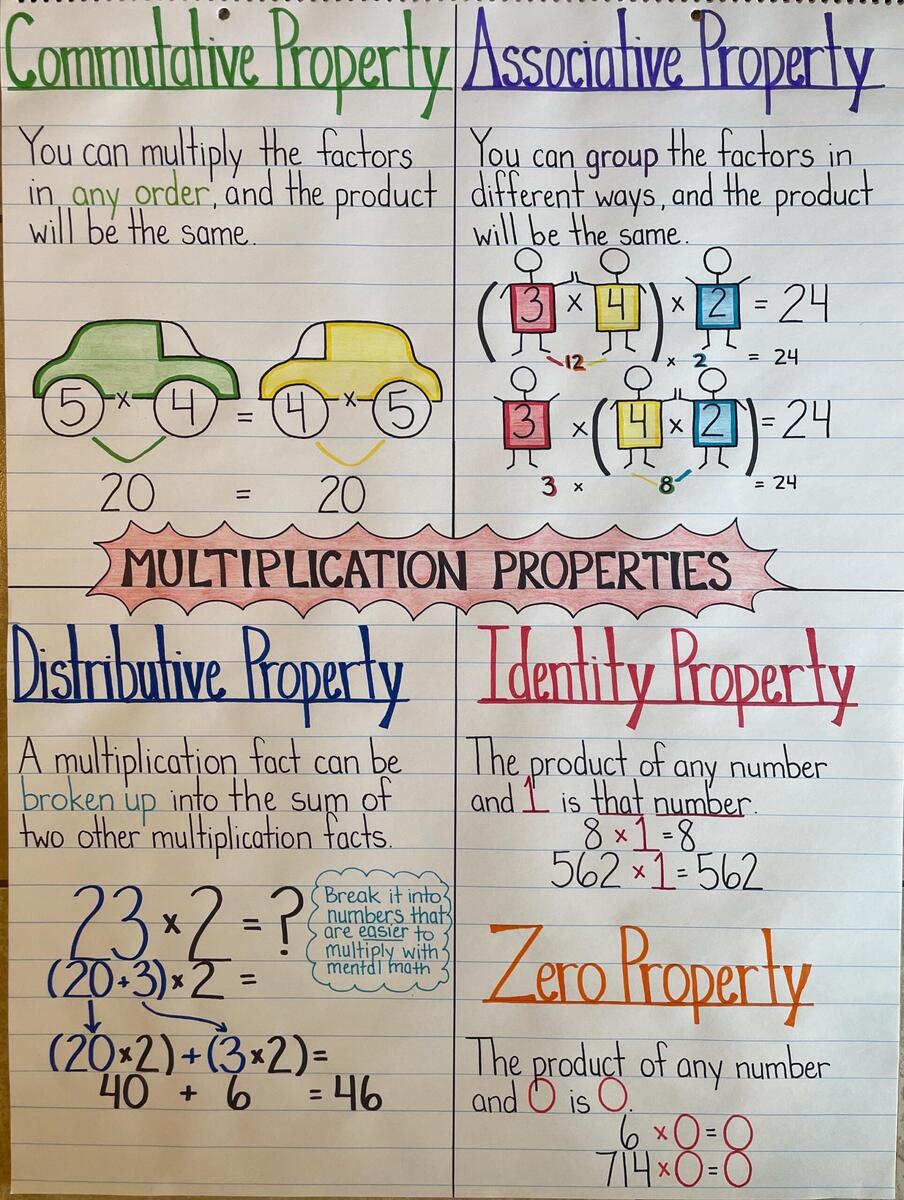 Commutative Property
You can multiply the factors
in any order, and the product
will be the same.
5 × 4 = 4 × 5
20 = 20
Associative Property
You can group the factors in
different ways, and the product
will be the same.
(3 × 4) × 2 = 24
12 × 2 = 24
3 × (4 × 2) = 24
3 × 8 = 24
MULTIPLICATION PROPERTIES
Distributive Property
A multiplication fact can be
broken up into the sum of
two other multiplication facts.
23 × 2 = ?
Break it into
numbers that
are easier to
multiply with
mental math
(20+3) × 2 =
(20×2)+(3×2)=
40 + 6 = 46
Identity Property
The product of any number
and 1 is that number.
8 × 1 = 8
562 × 1 = 562
Zero Property
The product of any number
and 0 is 0.
6 × 0 = 0
714 × 0 = 0